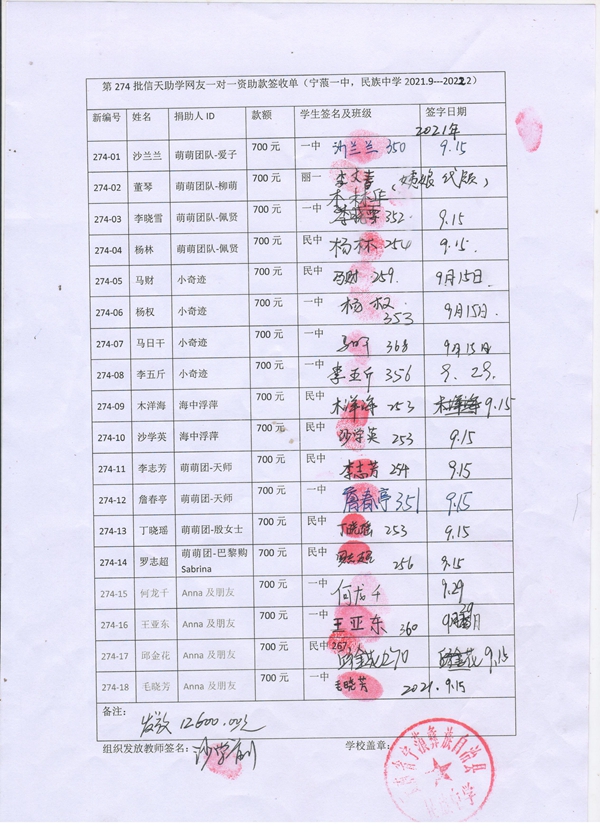 第 274 批信天助学网友一对一资助款签收单（宁蒗一中，民族中学 2021.9---2022.2）
新编号 姓名 捐助人 ID 款额 学生签名及班级 签字日期
2021年
274-01 沙兰兰 萌萌团队-爱子 700 元 一中 沙兰兰 350 9.15
274-02 董琴 萌萌团队-柳萌 700 元 丽一 李文春
274-03 李晓雪 萌萌团队-佩贤 700 元 一中 352 9.15
274-04 杨林 萌萌团队-佩贤 700 元 民中 杨林 254 9.15.
274-05 马财 小奇迹 700 元 民中 马财 259. 9月15日.
274-06 杨权 小奇迹 700 元 一中 杨权 353 9月15日.
274-07 马日干 小奇迹 700 元 一中 368 9月15日
274-08 李五斤 小奇迹 700 元 一中 李五斤 356 9.29.
274-09 木洋海 海中浮萍 700 元 民中 木洋海 253 9.15
274-10 沙学英 海中浮萍 700 元 民中 沙学英 253 9.15
274-11 李志芳 萌萌团-天师 700 元 民中 李志芳 254 9.15
274-12 詹春亭 萌萌团-天师 700 元 一中 詹春亭 351 9.15
274-13 丁晓瑶 萌萌团-殷女士 700 元 民中 丁晓瑶 253 9.15
274-14 罗志超 萌萌团-巴黎购 700 元 民中 罗志超 256 9.15
Sabrina
274-15 何龙千 Anna 及朋友 700 元 一中 何龙千 9.29
274-16 王亚东 Anna 及朋友 700 元 一中 王亚东 360
274-17 邱金花 Anna 及朋友 700 元 民中 267 邱金花 270 9.15
274-18 毛晓芳 Anna 及朋友 700 元 一中 毛晓芳 2021.9.15
备注：
发放 12600.00元
组织发放教师签名： 学校盖章：
省宁蒗彝族自治县